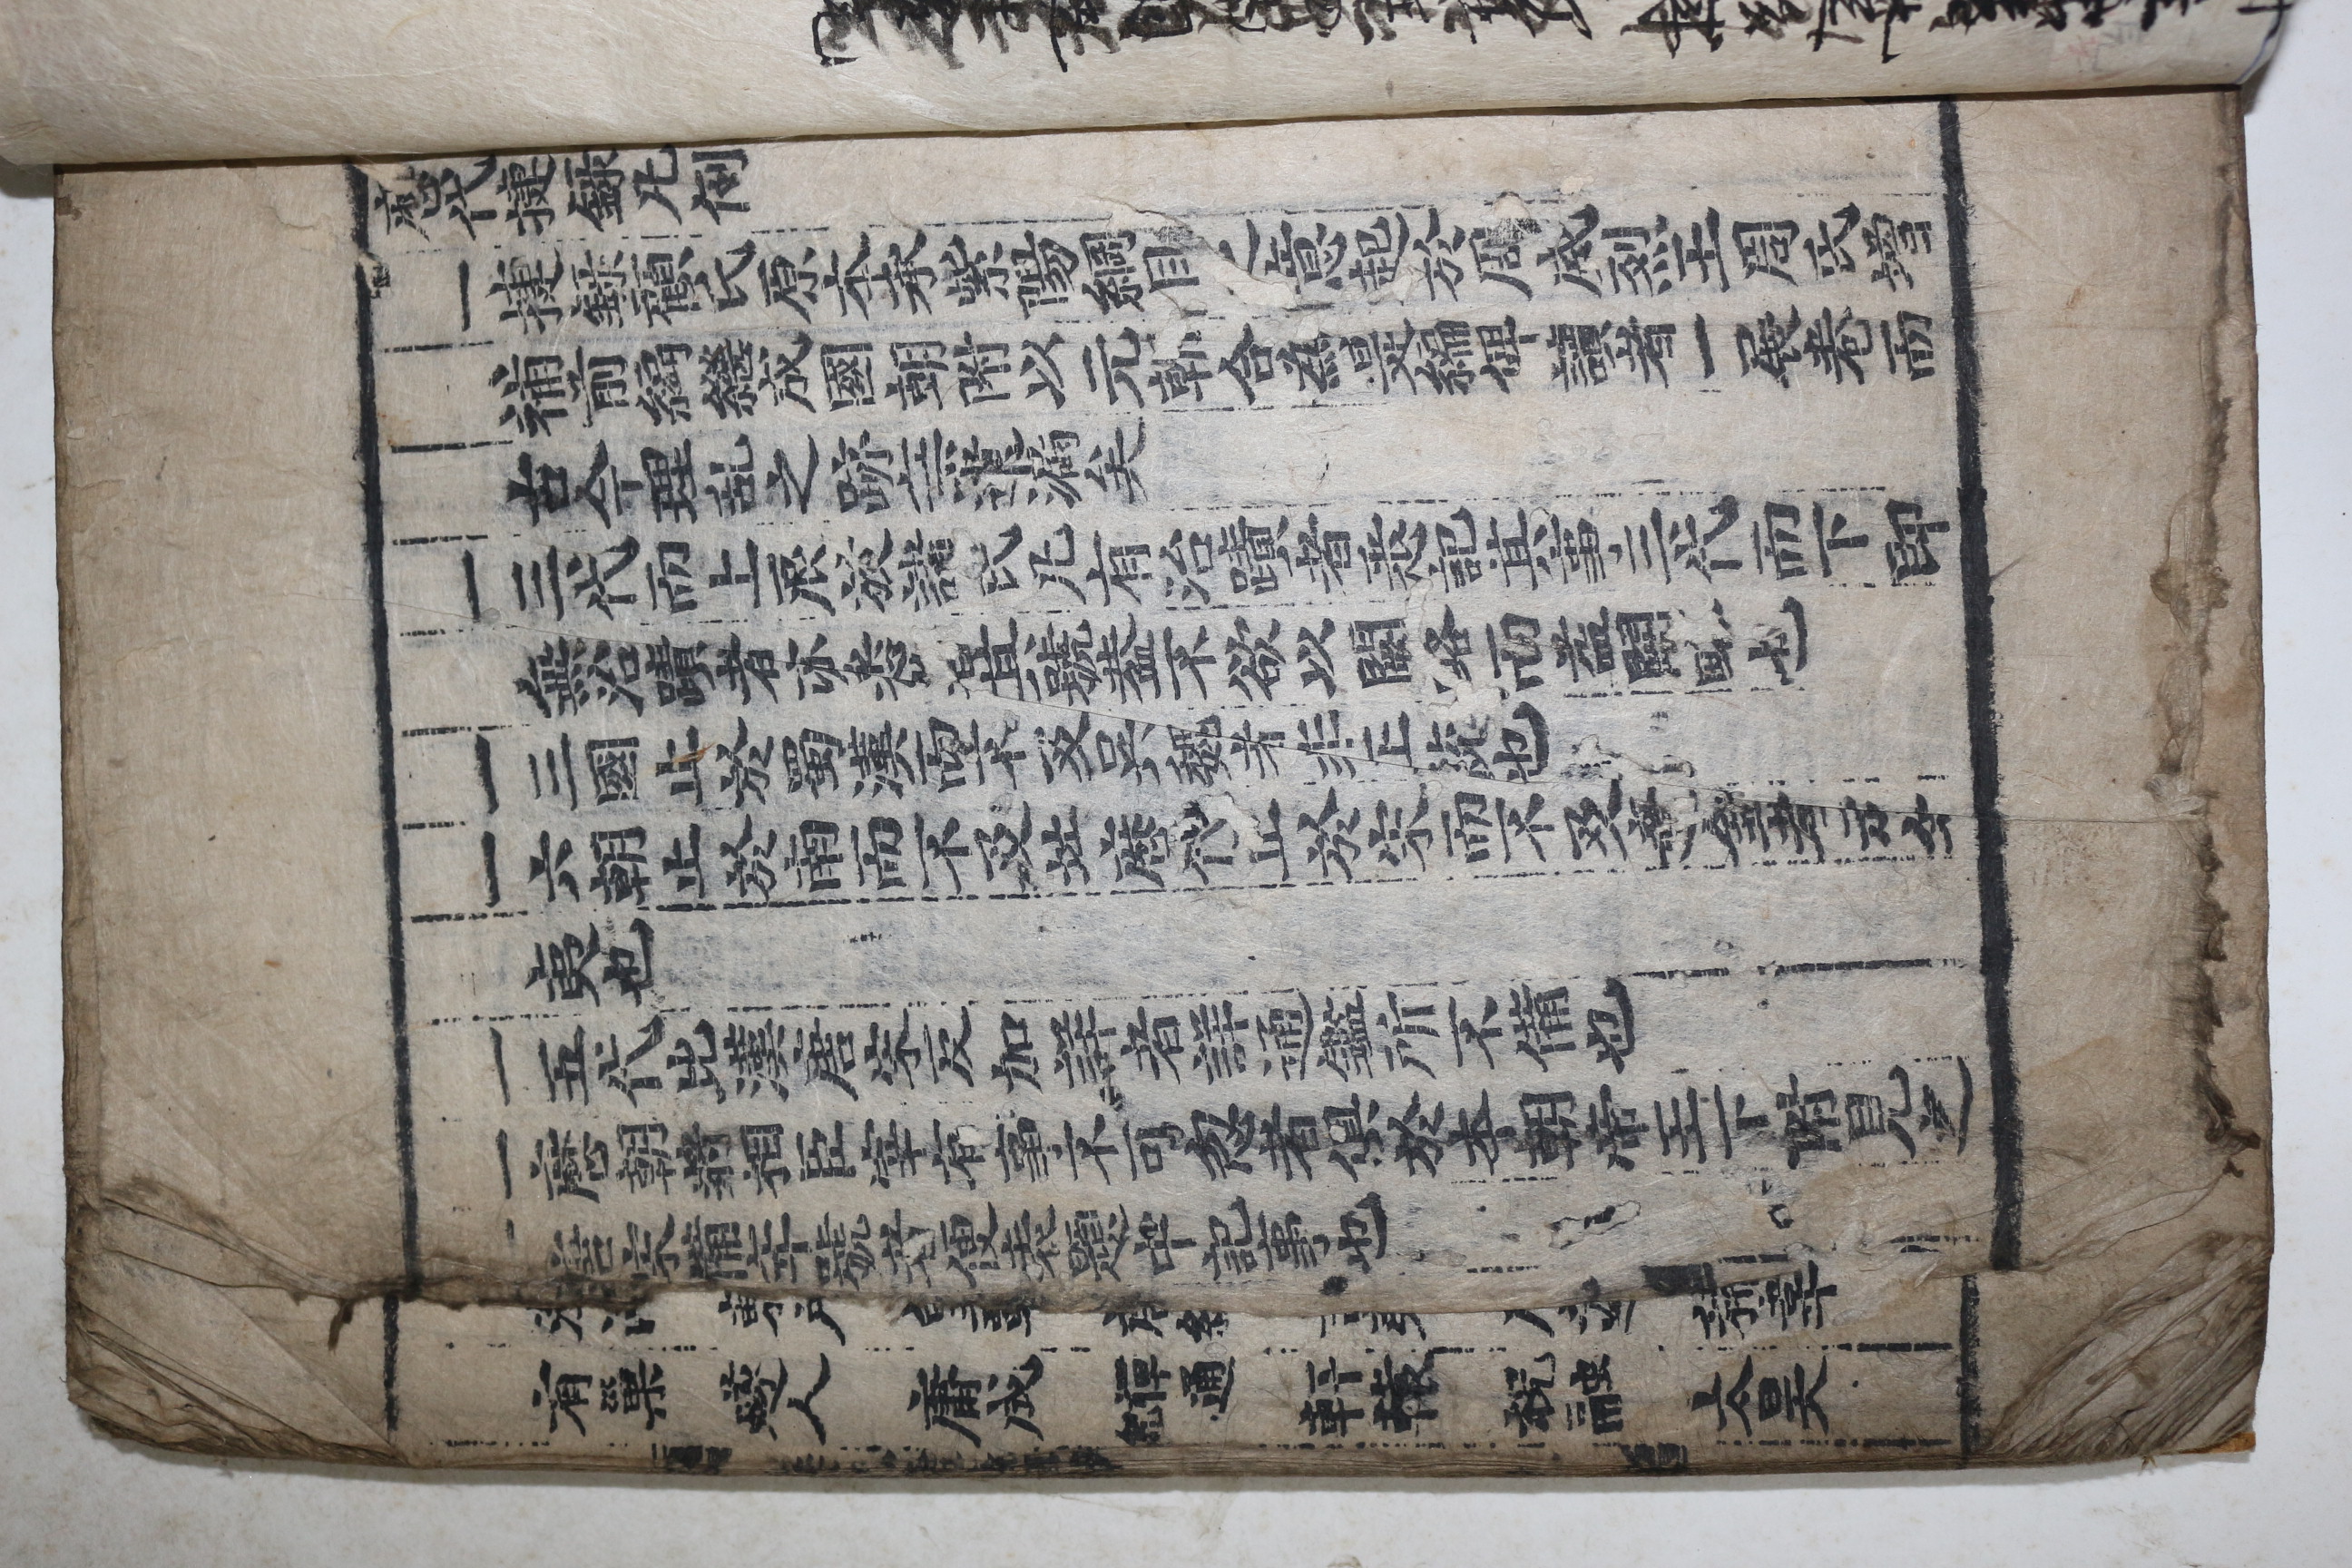 歷代捷錄凡例
一捷錄顧氏原本承紫陽綱目之意起於周威烈王周氏增
補前編繼成國朝附以元朝合為是編俾讀者一展卷而
古今理乱之跡無遺漏矣
一三代而上辰放諸氏凡有治蹟者悉記其事三代而下卽
無治蹟者亦悉追其號蓋不欲以闕略而益闕略也
一三國止於蜀漢而不及吳魏者非正統也
一六朝止於南而不及北歷代止於宋而不及遼金者
夷也
一五代比漢唐宋反加詳者詳通鑑所不備也
一歷朝將相臣宰有事不可忽者俱於本朝帝王下附見之
一唐宋備年號者便表題中記事也
有巢 燧人 庸成 禪通 軒轅 祝融 太昊